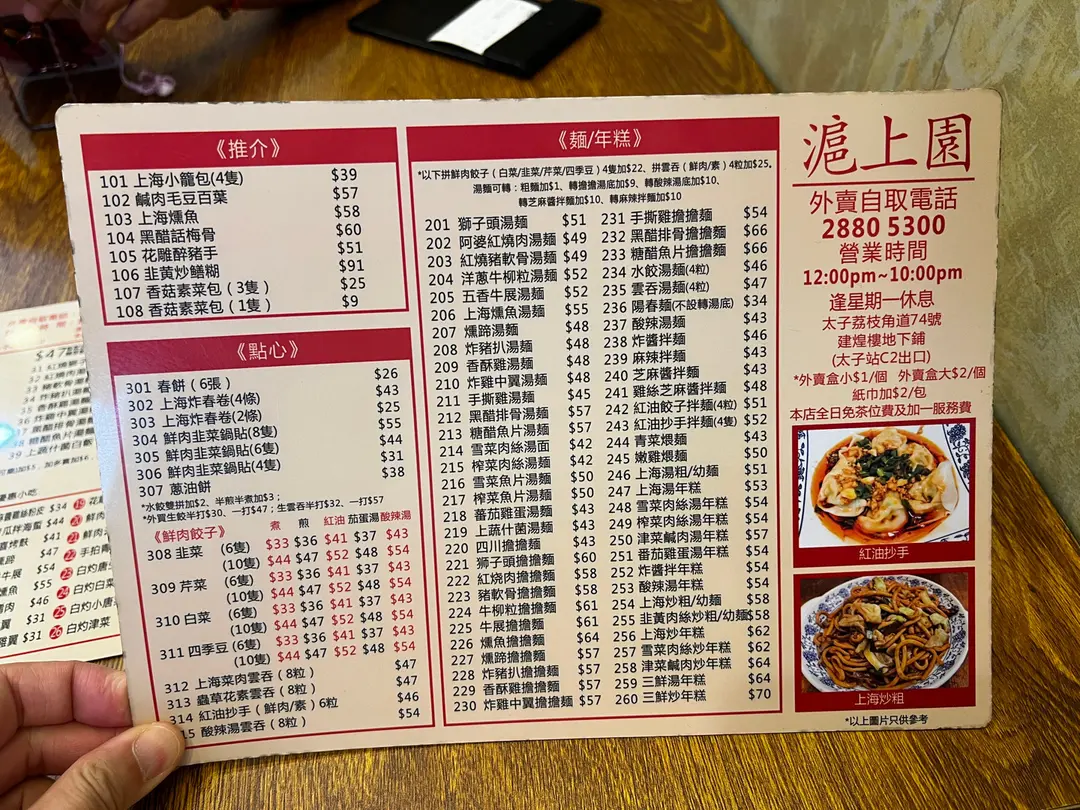 《推介》
101 上海小籠包(4隻) $39
102 鹹肉毛豆百葉 $57
103 上海燻魚 $58
104 黑醋話梅骨 $60
105 花雕醉豬手 $51
106 韭黄炒鱔糊 $91
107 香菇素菜包（3隻） $25
108 香菇素菜包（1隻） $9
《點心》
301 春餅（6張） $26
302 上海炸春卷(4條) $43
303 上海炸春卷(2條) $25
304 鮮肉韭菜鍋貼(8隻) $55
305 鮮肉韭菜鍋貼(6隻) $44
306 鮮肉韭菜鍋貼(4隻) $31
307 蔥油餅 $38
*水餃雙拼加$2、半煎半煮加$3；
*外買生餃半打$30、一打$47；生雲吞半打$32、一打$57
《鮮肉餃子》 煮 煎 紅油 茄蛋湯 酸辣湯
308 韭菜 (6隻) $33 $36 $41 $37 $43
(10隻) $44 $47 $52 $48 $54
309 芹菜 (6隻) $33 $36 $41 $37 $43
(10隻) $44 $47 $52 $48 $54
310 白菜 (6隻) $33 $36 $41 $37 $43
(10隻) $44 $47 $52 $48 $54
311 四季豆 (6隻) $33 $36 $41 $37 $43
(10隻) $44 $47 $52 $48 $54
312 上海菜肉雲吞（8粒） $47
313 蟲草花素雲吞（8粒） $47
314 紅油抄手（鮮肉/素）6粒 $46
15 酸辣湯雲吞（8粒） $54
《麵/年糕》
*以下拼鮮肉餃子（白菜/韭菜/芹菜/四季豆）4隻加$22、拼雲吞（鮮肉/素）4粒加$25。
湯麵可轉：粗麵加$1、轉擔擔湯底加$9、轉酸辣湯底加$10、
轉芝麻醬拌麵加$10、轉麻辣拌麵加$10
201 獅子頭湯麵 $51
202 阿婆紅燒肉湯麵 $49
203 紅燒豬軟骨湯麵 $49
204 洋蔥牛柳粒湯麵 $52
205 五香牛展湯麵 $52
206 上海燻魚湯麵 $55
207 燻蹄湯麵 $48
208 炸豬扒湯麵 $48
209 香酥雞湯麵 $48
210 炸雞中翼湯麵 $48
211 手撕雞湯麵 $45
212 黑醋排骨湯麵 $57
213 糖醋魚片湯麵 $57
214 雪菜肉絲湯面 $42
215 榨菜肉絲湯麵 $42
216 雪菜魚片湯麵 $50
217 榨菜魚片湯麵 $50
218 蕃茄雞蛋湯麵 $43
219 上蔬什菌湯麵 $43
220 四川擔擔麵 $43
221 獅子頭擔擔麵 $60
222 紅燒肉擔擔麵 $58
223 豬軟骨擔擔麵 $58
224 牛柳粒擔擔麵 $61
225 牛展擔擔麵 $61
226 燻魚擔擔麵 $64
227 燻蹄擔擔麵 $57
228 炸豬扒擔擔麵 $57
229 香酥雞擔擔麵 $57
230 炸雞中翼擔擔麵 $57
231 手撕雞擔擔麵 $54
232 黑醋排骨擔擔麵 $66
233 糖醋魚片擔擔麵 $66
234 水餃湯麵(4粒) $46
235 雲吞湯麵(4粒) $47
236 陽春麵(不設轉湯底) $34
237 酸辣湯麵 $43
238 炸醬拌麵 $46
239 麻辣拌麵 $43
240 芝麻醬拌麵 $43
241 雞絲芝麻醬拌麵 $48
242 紅油餃子拌麵(4粒) $51
243 紅油抄手拌麵(4隻) $52
244 青菜煨麵 $43
245 嫩雞煨麵 $50
246 上海湯粗/幼麵 $51
247 上海湯年糕 $53
248 雪菜肉絲湯年糕 $54
249 榨菜肉絲湯年糕 $54
250 津菜鹹肉湯年糕 $57
251 番茄雞蛋湯年糕 $54
252 炸醬年糕 $54
253 酸辣湯年糕 $54
254 上海炒粗/幼麵 $58
255 韭黃肉絲炒粗/幼麵 $58
256 上海炒年糕 $62
257 雪菜肉絲炒年糕 $62
258 津菜鹹肉炒年糕 $64
259 三鮮湯年糕 $64
260 三鮮炒年糕 $70
滬上園
外賣自取電話
2880 5300
營業時間
12:00pm~10:00pm
逢星期一休息
太子荔枝角道74號
建煌樓地下鋪
(太子站C2出口)
*外賣盒小$1/個 外賣盒大$2/個
紙巾加$2/包
本店全日免茶位費及加一服務費
紅油抄手
上海炒粗
*以上圖片只供參考